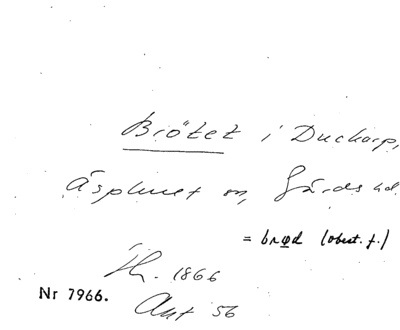 Brötet i Ducharp,
Äsphuet sn, Gärds hd.
= brød (obest. f.)
Th. 1866
Nr 7966.
Akt 56